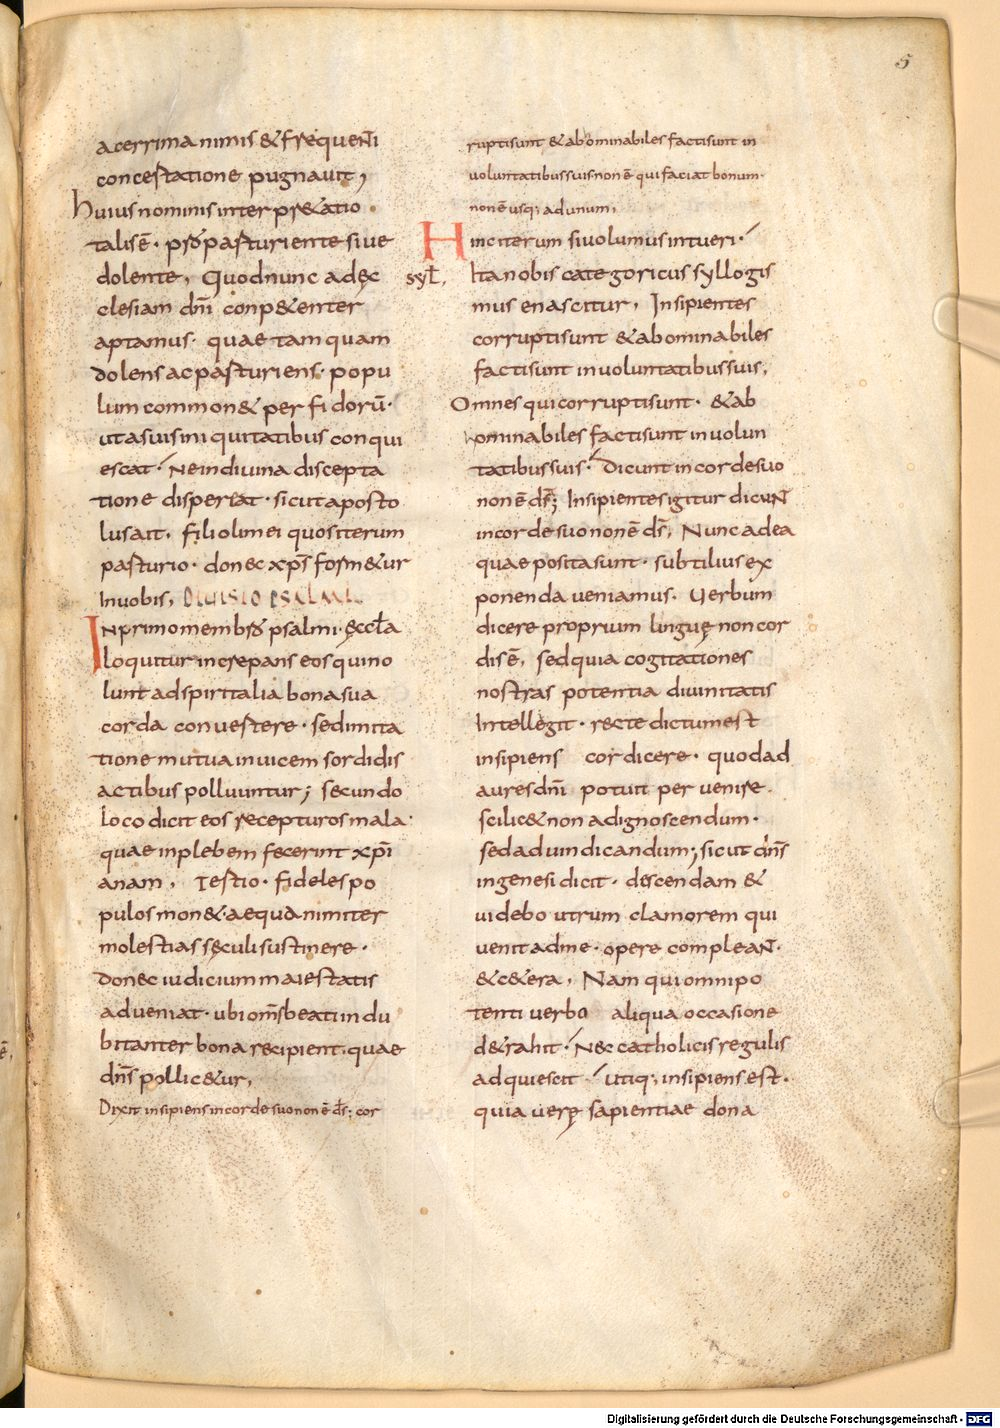 5
acerrima nimis & frequenti
concertatione pugnavit,
huius nominis interpr&atio
talis ē. pro parturiente sive
dolente, Quod nunc ad ęc
clesiam dn̄i conp&enter
aptamus. quae tamquam
dolens ac parturiens. popu
lum common& perfidorū.
ut a suis iniquitatibus conqui
escat. Ne in divina discepta
tione disper&at. sicut aposto
lus ait. filioli mei quos iterum
parturio. donec xp̄s form&ur
In vobis, DIVISIO PSALMI.
In primo membro psalmi. ęccła
loquitur increpans eos qui no
lunt ad spiritalia bona sua
corda convertere. sed imita
tione mutua invicem sordidis
actibus polluuntur; secundo
loco dicit eos recepturos mala.
quae in plebem fecerint xp̄i
anam, Tertio. fideles po
pulos mon& aequanimiter
molestias sęculi sustinere.
donec iudicium maiestatis
adveniat. ubi om̄s beati indu
bitanter bona recipient. quae
dn̄s pollic&ur,
Dixit insipiens in corde suo non ē d̄s; cor
rupti sunt & abominabiles facti sunt in
voluntatibus suis non ē qui faciat bonum.
non ē usq; ad unum,
Hinc iterum si volumus intueri.
sył, Ita nobis categoricus syllogis
mus enascitur, Insipientes
corrupti sunt & abominabiles
facti sunt in voluntatibus suis,
Omnes qui corrupti sunt. & ab
ominabiles facti sunt in volun
tatibus suis. Dicunt in corde suo
non ē d̄s; Insipientes igitur dicunt
in corde suo non ē d̄s, Nunc ad ea
quae posita sunt. subtilius ex
ponenda veniamus. Verbum
dicere proprium linguę non cor
dis ē, sed quia cogitationes
nostras potentia divinitatis
Intellegit. recte dictum est
insipiens cor dicere. quod ad
aures dn̄i potuit pervenire.
scilic& non adignoscendum.
sed ad iudicandum; sicut dn̄s
in genesi dicit. descendam &
videbo utrum clamorem qui
venit ad me. opere compleant.
& c&era, Nam qui omnipo
tenti verbo aliqua occasione
d&rahit. Nec catholicis regulis
adquiescit. utiq; insipiens est.
quia verę sapientiae dona
Digitalisierung gefördert durch die Deutsche Forschungsgemeinschaft - DFG